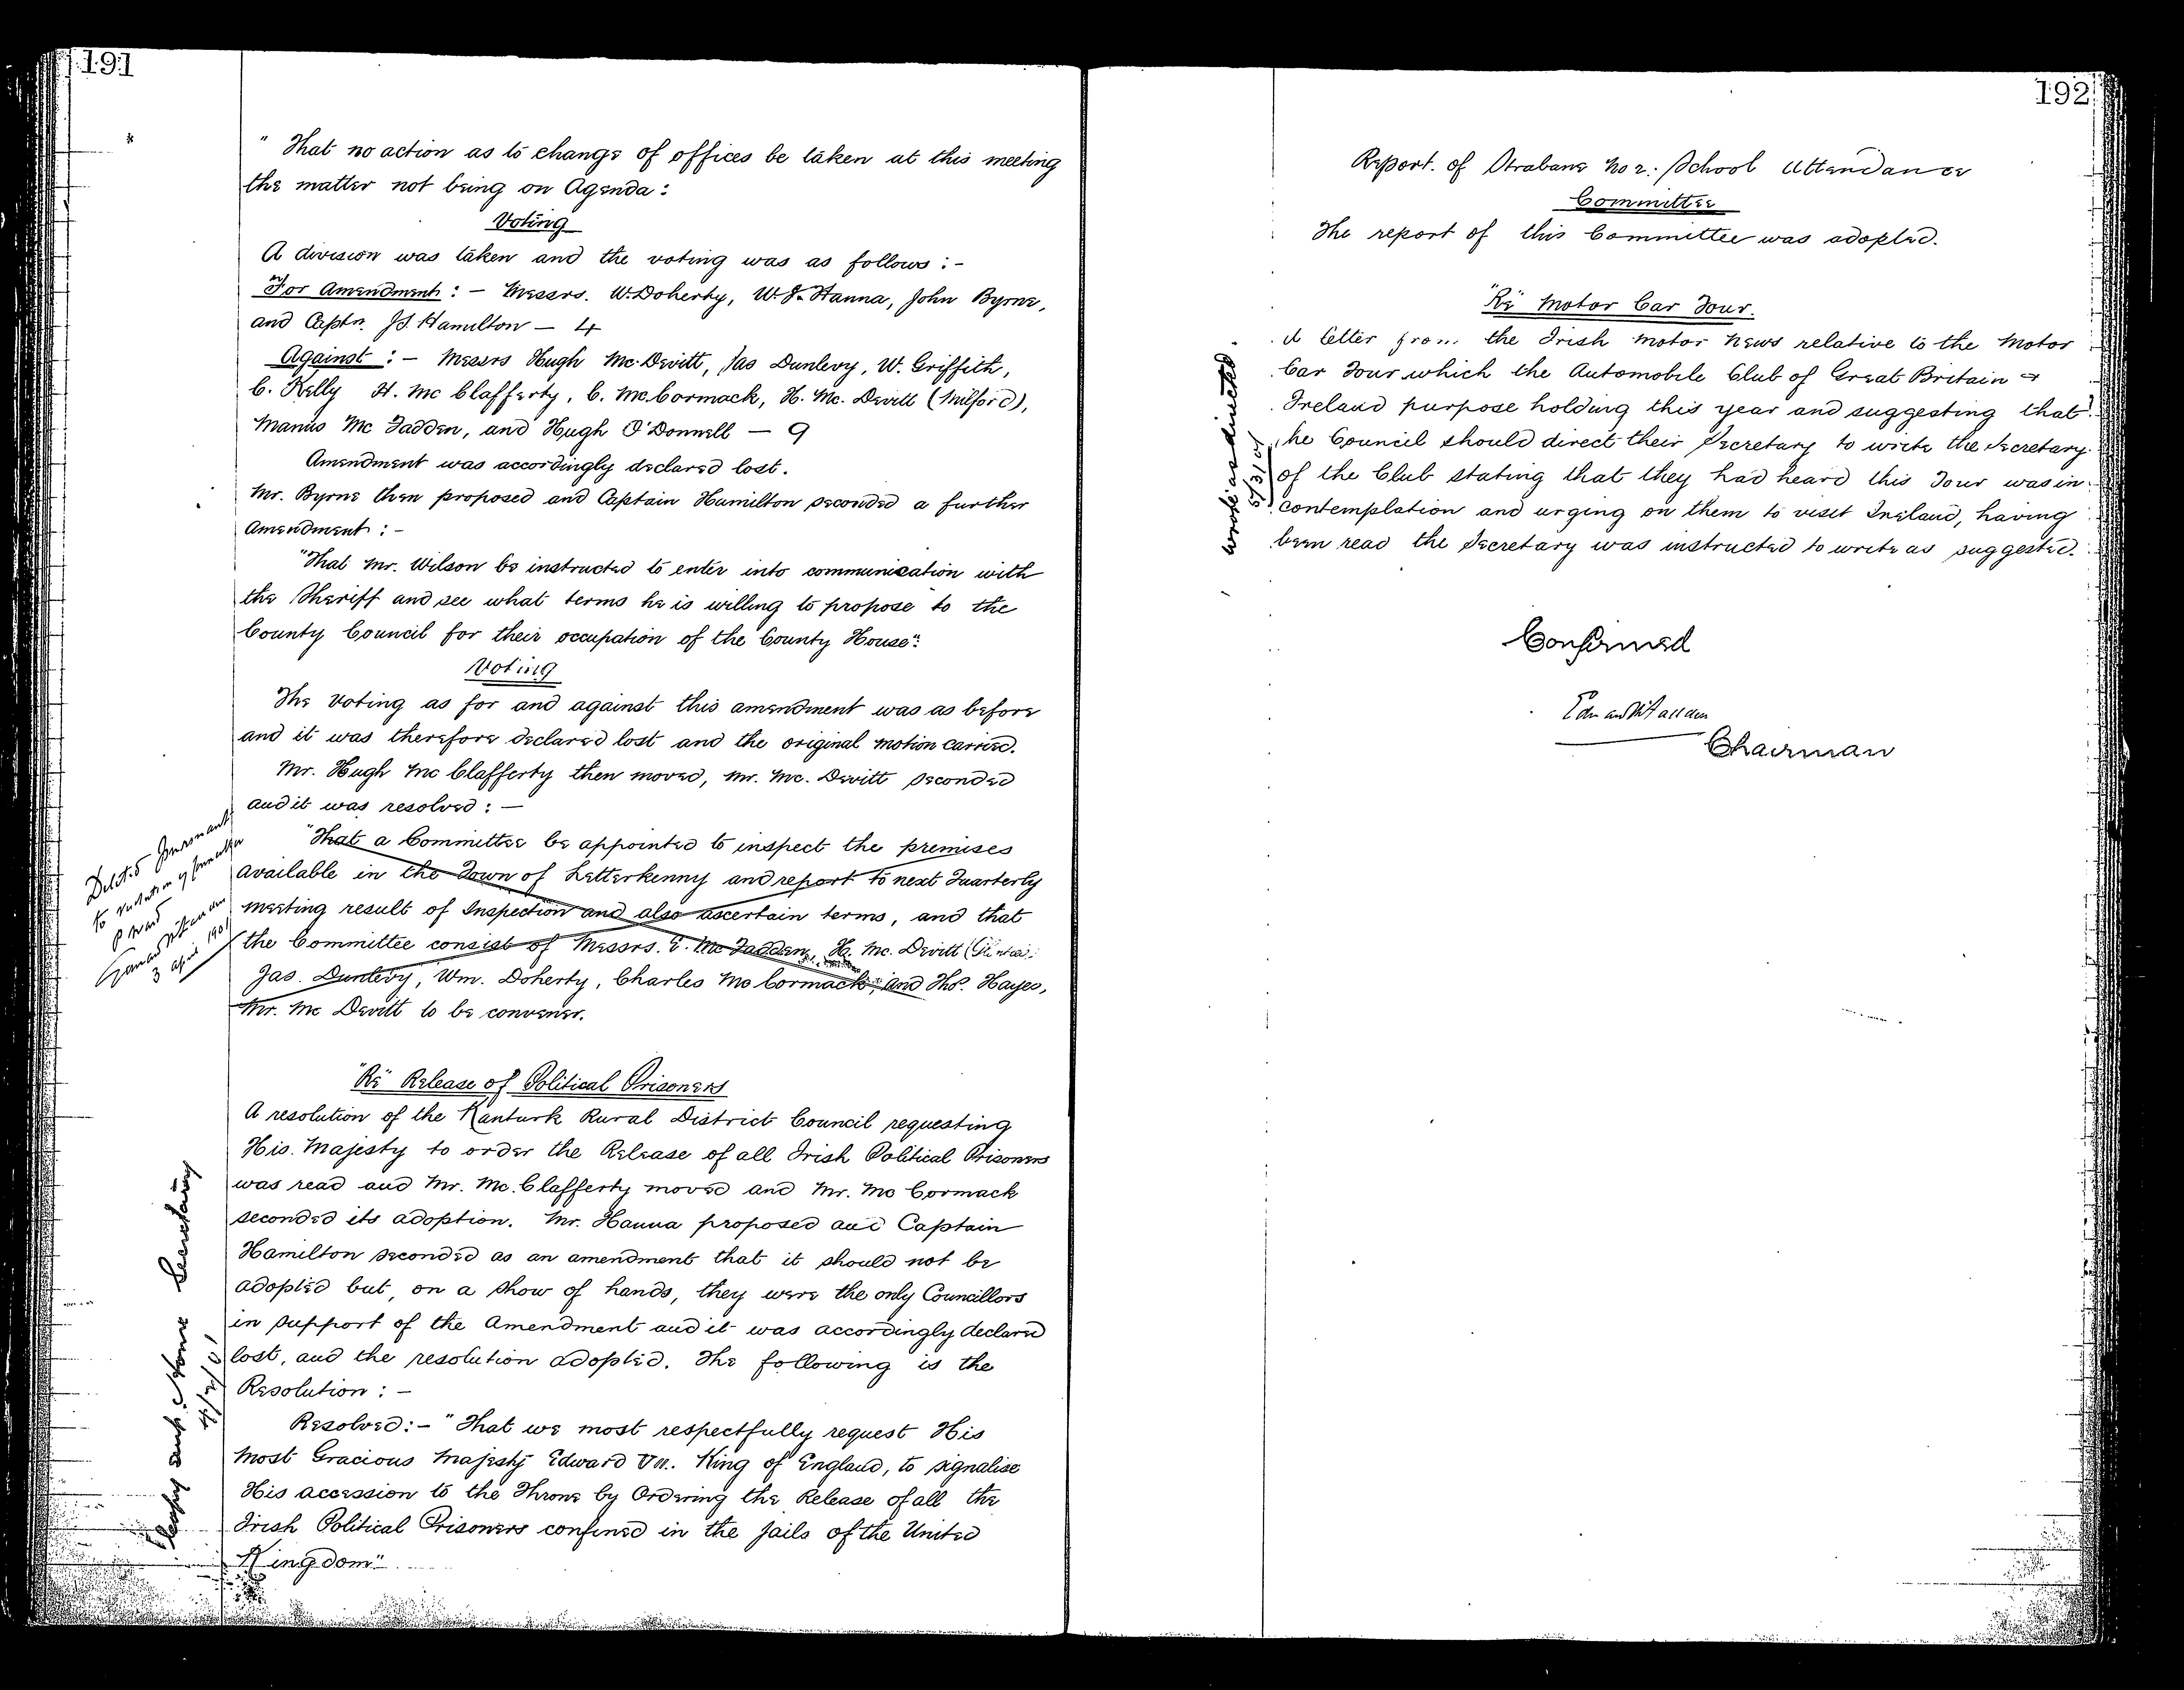 191
" That no action as to change of offices be taken at this meeting
the matter not being on Agenda :
Voting
A division was taken and the voting was as follows : -
For Amendment : - Messrs. W. Doherty, W. J. Hanna, John Byrne,
and Captn. Hamilton - 4
Against : - Messrs Hugh Mc. Devitt, Jas Dunlevy, W. Griffith,
C. Kelly H. Mc Clafferty, C. Mc. Cormack, H. Mc. Devitt (Milford),
Manus Mc Fadden, and Hugh O'Donnell - 9
Amendment was accordingly declared lost.
Mr. Byrne then proposed and Captain Hamilton seconded a further
Amendment : -
"That Mr. Wilson be instructed to enter into communication with
the Sheriff and see what terms he is willing to propose to the
County Council for their occupation of the County House".
Voting
The Voting as for and against this amendment was as before
and it was therefore declared lost and the original motion carried.
Mr. Hugh Mc Clafferty then moved, Mr. Mc. Devitt seconded
and it was resolved : -
"That a Committee be appointed to inspect the premises
available in the Town of Letterkenny and report to next Quarterly
meeting result of Inspection and also ascertain terms, and that
the Committee consist of Messrs. E. Mc Fadden, H. Mc. Devitt
Jas. Dunlevy, Wm. Doherty, Charles Mc Cormack, and Thos. Hayes,
Mr. Mc Devitt to be convener.
Deleted Pursuant
to resolution of
passed
3 April 1901
"Re" Release of Political Prisoners
A resolution of the Kanturk Rural District Council requesting
His Majesty to order the Release of all Irish Political Prisoners
was read and Mr. Mc. Clafferty moved and Mr. Mc Cormack
seconded its adoption. Mr. Hanna proposed and Captain
Hamilton seconded as an amendment that it should not be
adopted but, on a show of hands, they were the only Councillors
in support of the Amendment and it was accordingly declared
lost, and the resolution adopted. The following is the
Resolution : -
Resolved: - "That we most respectfully request His
Most Gracious Majesty Edward VII. King of England, to signalise
His accession to the Throne by Ordering the Release of all the
Irish Political Prisoners confined in the Jails of the United
Kingdom"
Copy sent Home Secretary
192
Report. of Strabane No 2. School Attendance
Committee
The report of this Committee was adopted.
"Re" Motor Car Tour.
A letter from the Irish Motor News relative to the Motor
Car Tour which the Automobile Club of Great Britain &
Ireland purpose holding this year and suggesting that
the Council should direct their Secretary to write the Secretary
of the Club stating that they had heard this Tour was in
contemplation and urging on them to visit Ireland, having
been read the Secretary was instructed to write as suggested.
Wrote as directed.
5/3/01
Confirmed
Chairman